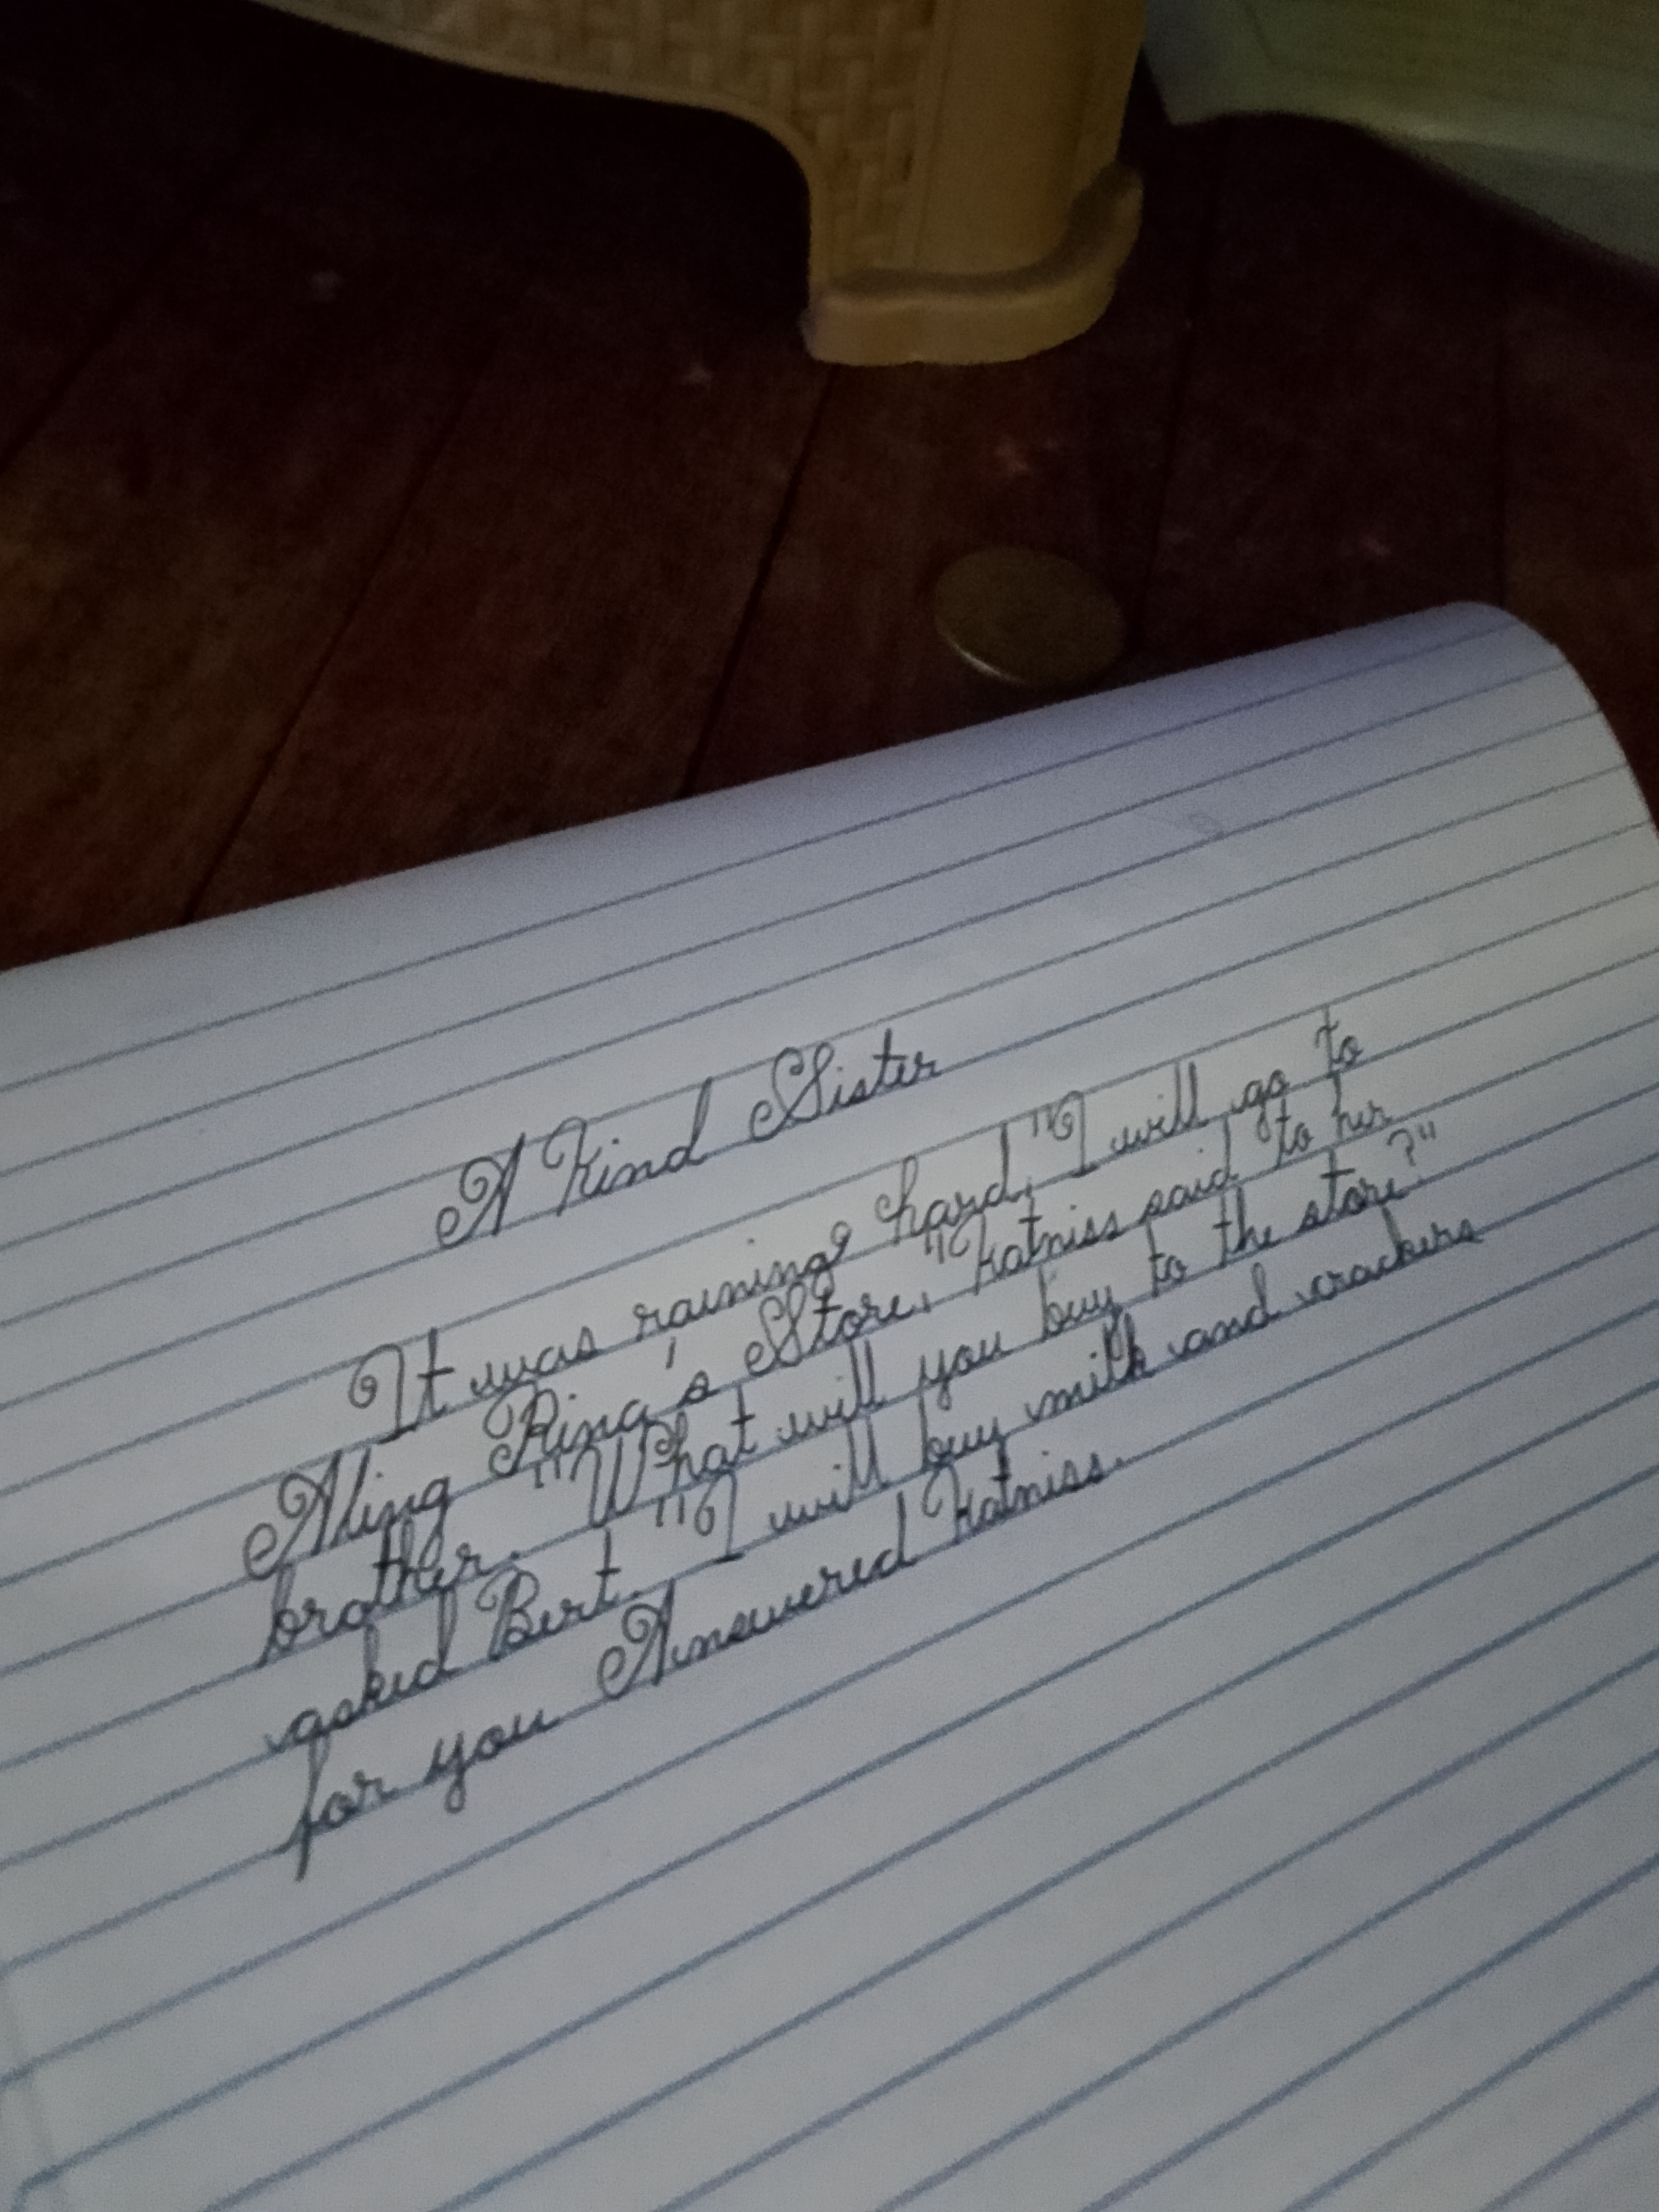 A Kind Sister
It was raining hard, "I will go to
Aling Ring's Store," Katniss said to her
brother. "What will you buy to the store?"
asked Bert. "I will buy milk and crackers
for you Answered Katniss.